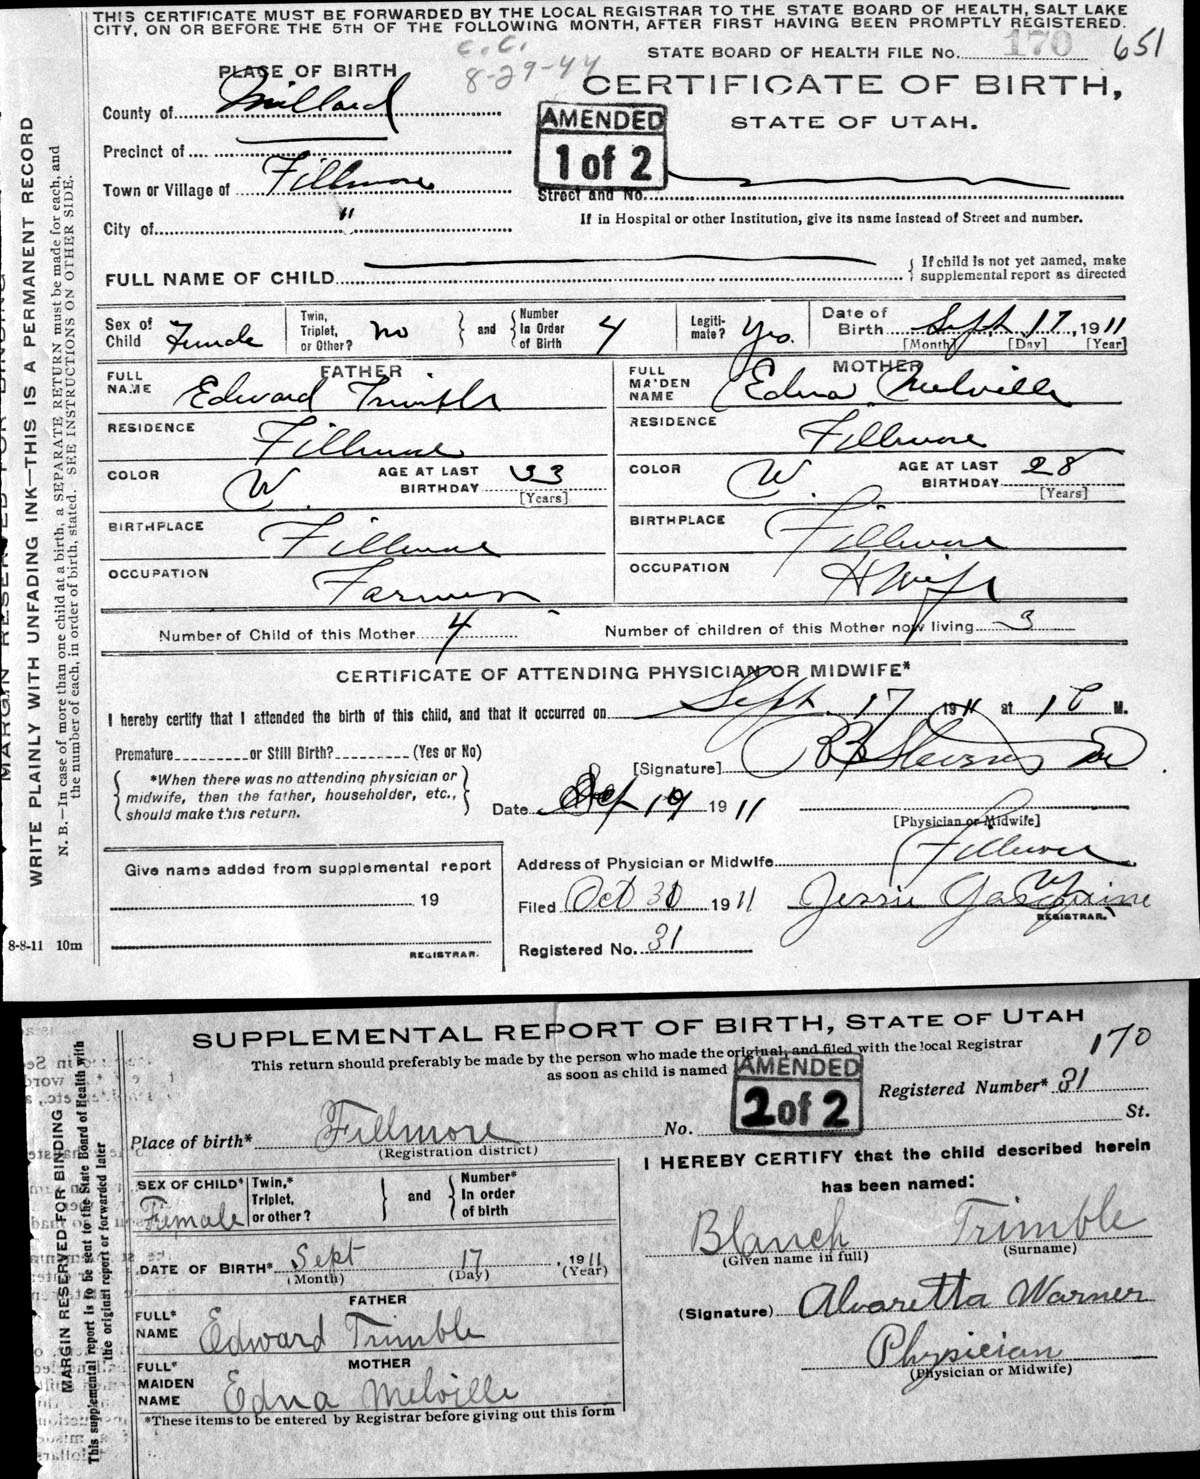 THIS CERTIFICATE MUST BE FORWARDED BY THE LOCAL REGISTRAR TO THE STATE BOARD OF HEALTH, SALT LAKE
CITY, ON OR BEFORE THE 5TH OF THE FOLLOWING MONTH, AFTER FIRST HAVING BEEN PROMPTLY REGISTERED.
C.C.
8-29-44
STATE BOARD OF HEALTH FILE No. 170 651
PLACE OF BIRTH
CERTIFICATE OF BIRTH,
STATE OF UTAH.
AMENDED
1 of 2
County of Millard
Precinct of
Town or Village of Fillmore
Street and No.
If in Hospital or other Institution, give its name instead of Street and number.
City of "
FULL NAME OF CHILD
If child is not yet named, make
supplemental report as directed
Sex of Child Female
Twin, Triplet, or Other? no
and
Number In Order of Birth 4
Legiti-mate? Yes.
Date of Birth Sept. 17, 1911
[Month] [Day] [Year]
FATHER
FULL NAME Edward Trimble
RESIDENCE Fillmore
COLOR W. AGE AT LAST BIRTHDAY 33
[Years]
BIRTHPLACE Fillmore
OCCUPATION Farmer
MOTHER
FULL MAIDEN NAME Edna Melville
RESIDENCE Fillmore
COLOR W. AGE AT LAST BIRTHDAY 28
[Years]
BIRTHPLACE Fillmore
OCCUPATION H Wife
Number of Child of this Mother 4 Number of children of this Mother now living 3
CERTIFICATE OF ATTENDING PHYSICIAN OR MIDWIFE*
I hereby certify that I attended the birth of this child, and that it occurred on Sept. 17 1911 at M.
Premature or Still Birth? (Yes or No)
[Signature] Stevens
*When there was no attending physician or
midwife, then the father, householder, etc.,
should make this return.
Date 19 1911
[Physician or Midwife]
Address of Physician or Midwife Fillmore
Give name added from supplemental report
19
REGISTRAR.
Filed Oct 1911 Jessie
REGISTRAR.
Registered No. 31
8-8-11 10m
WRITE PLAINLY WITH UNFADING INK—THIS IS A PERMANENT RECORD
N. B.—In case of more than one child at a birth, a SEPARATE RETURN must be made for each, and
the number of each, in order of birth, stated. SEE INSTRUCTIONS ON OTHER SIDE.
SUPPLEMENTAL REPORT OF BIRTH, STATE OF UTAH
This return should preferably be made by the person who made the original, and filed with the local Registrar
as soon as child is named
170
AMENDED
2 of 2
Registered Number* 31
Place of birth* Fillmore
(Registration district)
No. St.
SEX OF CHILD* Female
Twin,* Triplet, or other?
and
Number* In order of birth
DATE OF BIRTH* Sept 17, 1911
(Month) (Day) (Year)
FATHER
FULL* NAME Edward Trimble
MOTHER
FULL* MAIDEN NAME Edna Melville
*These items to be entered by Registrar before giving out this form
I HEREBY CERTIFY that the child described herein
has been named:
Blanch Trimble
(Given name in full) (Surname)
(Signature) Alvaretta Warner
Physician
(Physician or Midwife)
MARGIN RESERVED FOR BINDING
This supplemental report is to be sent to the State Board of Health with
the original report or forwarded later